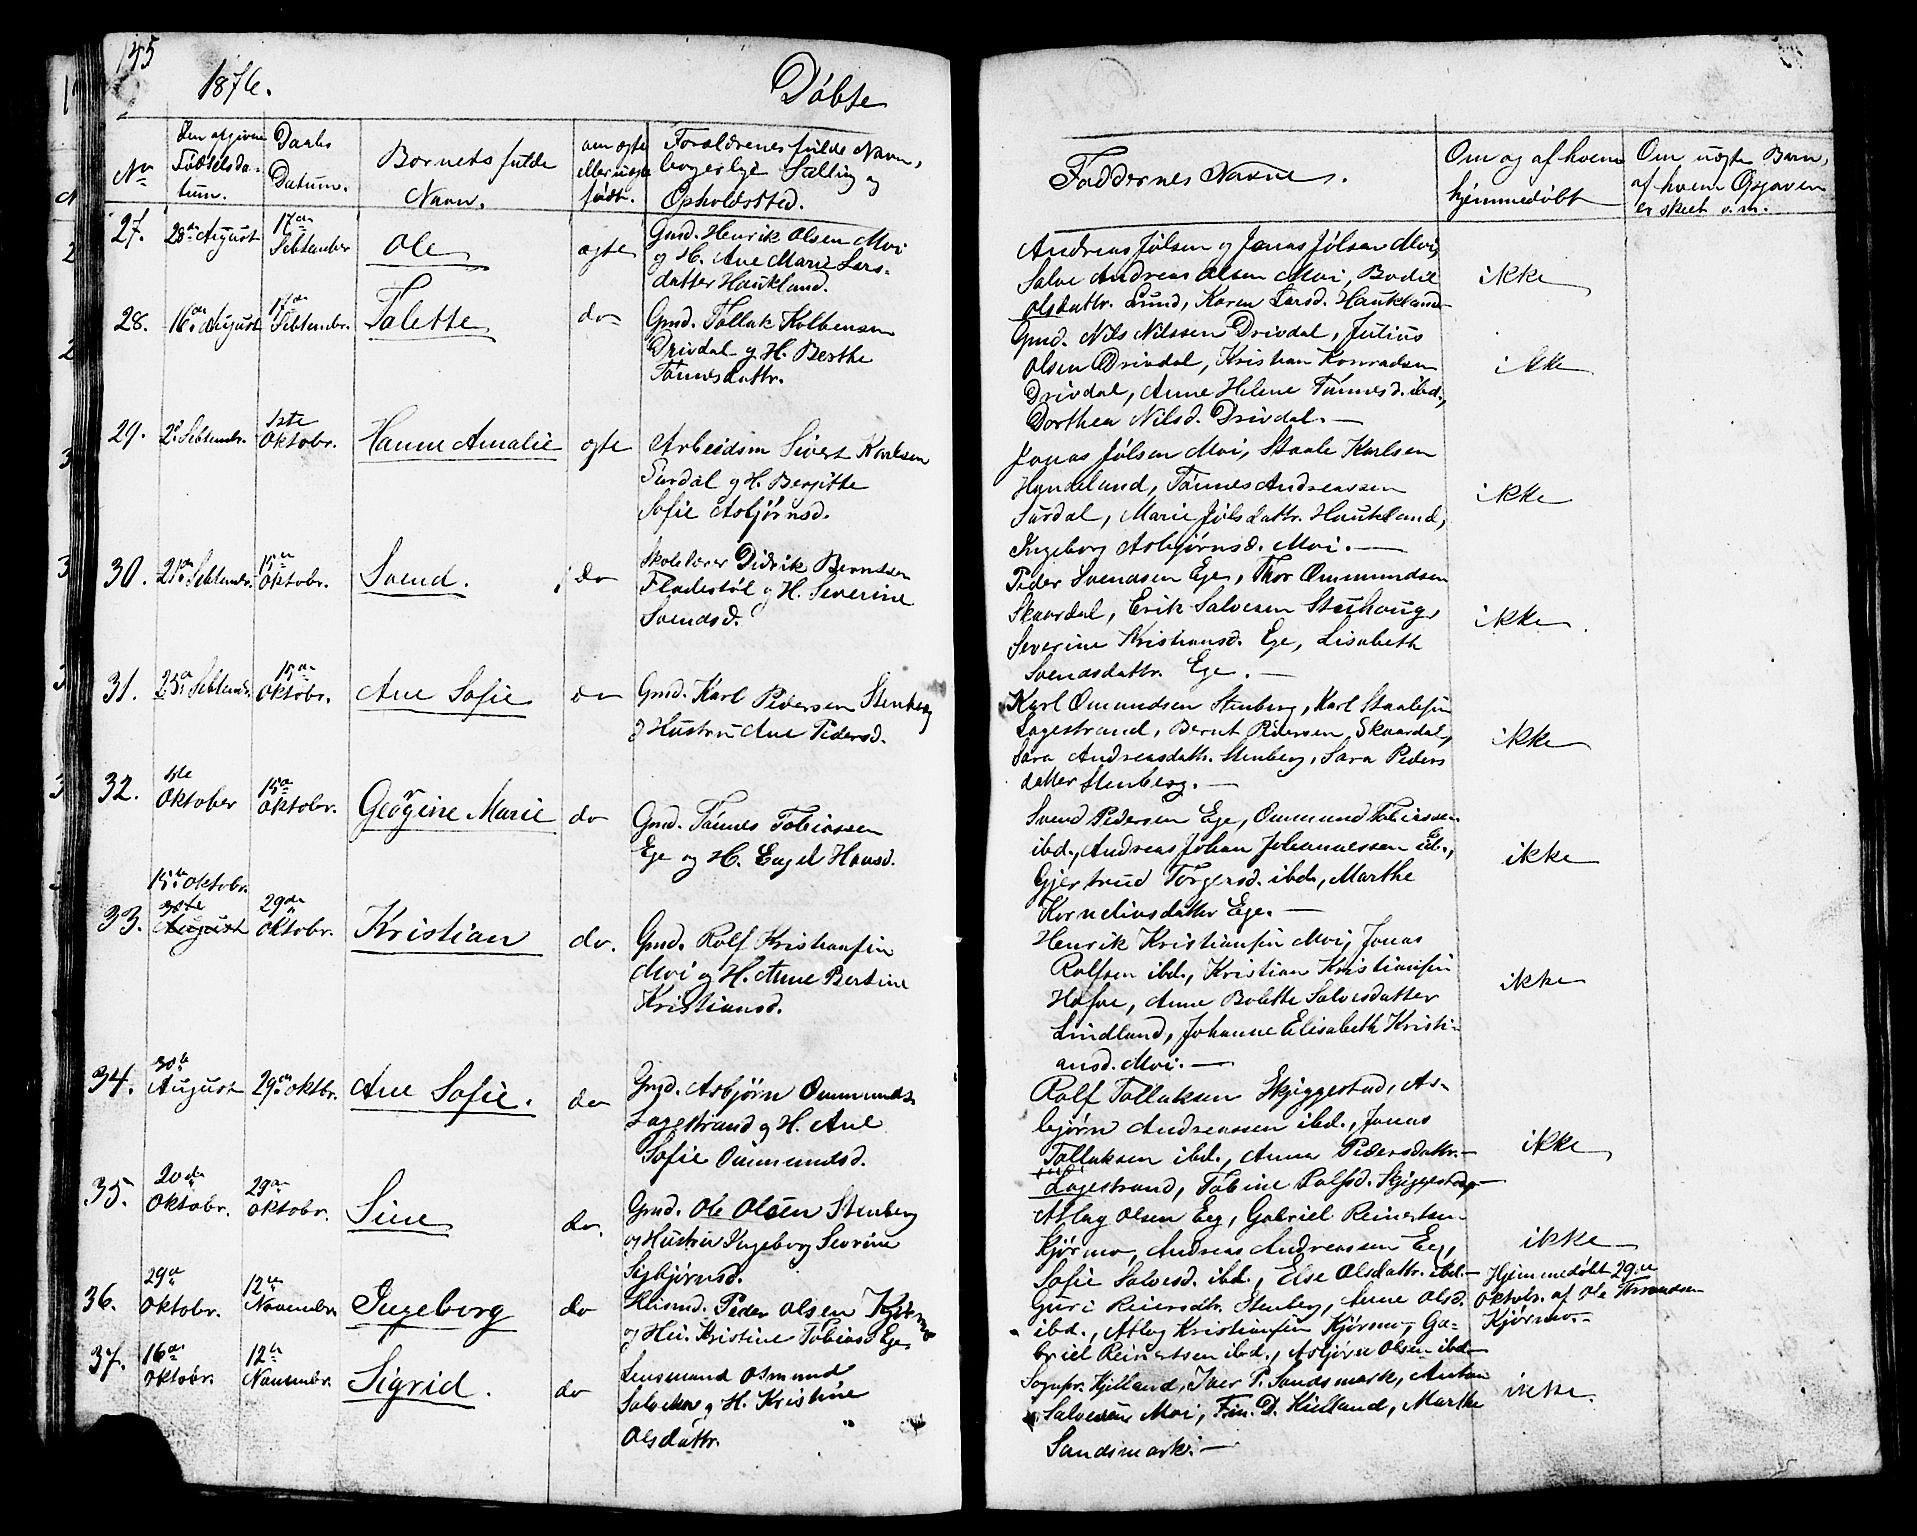 145
1876.
Døbte
No
Den opgivne Fødselsdatum.
Daabs Datum.
Barnets fulde Navn.
om ægte eller uægte født.
Forældrenes fulde Navn, borgerlige Stilling og Opholdssted.
Faddernes Navne.
Om og af hvem hjemmedøbt
Om uægte Barn, af hvem Opgaven er skeet o.m.
27. 28de August 17de September Ole ægte
Gmd. Henrik Olsen Moi
og H. Ane Marie Lars-
datter Haukland.
Andreas Jølsen og Jonas Jølsen Moi,
Salve Andreas Olsen Moi, Bodil
Olsdattr. Lund, Karen Larsd. Haukland
ikke
28. 16de August 17de Septembr. Talette do
Gmd. Tollak Kolbensen
Drivdal og H. Berthe
Tønnesdattr.
Gmd. Nils Nilssen Drivdal, Julius
Olsen Drivdal, Kristian Konradsen
Drivdal, Anne Helene Tønnesd. ibd.,
Dorthea Nilsd. Drivdal.—
ikke
29. 2d. Septembr. 1ste Oktobr. Hanne Amalie ægte
Arbeidsm Sivert Karlsen
Surdal og H. Bergitte
Sofie Asbjørnsd.
Jonas Jølsen Moi, Staale Karlsen
Handeland, Tønnes Andreassen
Surdal, Marie Jølsdattr. Haukland,
Ingeborg Asbjørnsd. Moi.—
ikke
30. 21de Septembr. 15de Oktobr. Svend. do
Skolelærer Didrik Berntsen
Fladestøl og H. Severine
Svendsd.
Peder Svendsen Ege, Thor Ommundsen
Skaardal, Erik Salvesen Stuhoug,
Severine Kristiansd. Ege, Lisabeth
Svendsdattr. Ege.—
ikke
31. 25de Septembr. 15de Oktobr. Ane Sofie do
Gmd. Karl Pedersen Stenberg
og Hustru Ane Pedersd.
Karl Omundsen Stenberg, Karl Staalesen
Lagestrand, Bernt Pedersen Skaardal,
Sara Andreasdattr. Stenberg, Sara Peders
datter Stenberg.—
ikke
32. 1ste Oktober 15de Oktobr. Georgine Marie do
Gmd. Tønnes Tobiassen
Ege og H. Engel Hansd.
Svend Pedersen Ege, Ommund Tobiassen
ibd., Andreas Johan Johannessen ibd.,
Gjertrud Torgersd. ibd., Marthe
Korneliusdatter Ege.—
ikke
33. 15de Oktobr. 30te August 29de Oktobr. Kristian do.
Gmd. Rolf Kristiansen
Moi og H. Anne Bertine
Kristiansd.
Henrik Kristiansen Moi, Jonas
Rolfsen ibd., Kristian Kristiansen
Hafse, Anne Bolette Salvesdatter
Lindland, Johanne Elisabeth Kristi-
ansd. Moi.—
ikke
34. 30te August 29de Oktbr. Ane Sofie. do
Gmd. Asbjørn Ommunds.
Lagestrand og H. Ane
Sofie Ommundsd.
Rolf Tollaksen Skjggestad, As-
bjørn Andreassen ibd., Jonas
Tollaksen ibd., Anna Pedersdattr.
Lagestrand, Tobine Rolfsd. Skjggestad
ikke
35. 20de Oktobr. 29de Oktobr. Sine do.
Gmd. Ole Olsen Stenberg
og Hustru Ingeborg Sevrine
Sigbjørnsd.
Atlag Olsen Eeg, Gabriel Reinertsen
Kjørmo, Andreas Andreassen Eeg,
Sofie Salvesd. ibd., Else Olsdattr. ibd.—
ikke
36. 29de Oktobr. 12te Novembr. Ingeborg do
Hsmd. Peder Olsen Kjørmo
og Hu. Kristine Tobiasd. Ege
Guri Reiersdtr. Stenberg, Anne Olsd.
ibd., Atlag Kristiansen Kjørmo, Ga-
briel Reinertsen ibd., Asbjørn Olsen ibd.
Hjemmedøbt 29de
Oktobr. af Ole Trondsen
Kjørmo.—
37. 16de Oktobr. 12te Novembr. Sigrid. do
Lensmand Osmund
Salvesen og H. Kristine
Olsdattr.
Sognpr. Kjelland, Iver P. Sandsmark, Anton
Salvesen Moi, Frn. D. Kielland, Marthe
Sandsmark.—
ikke.